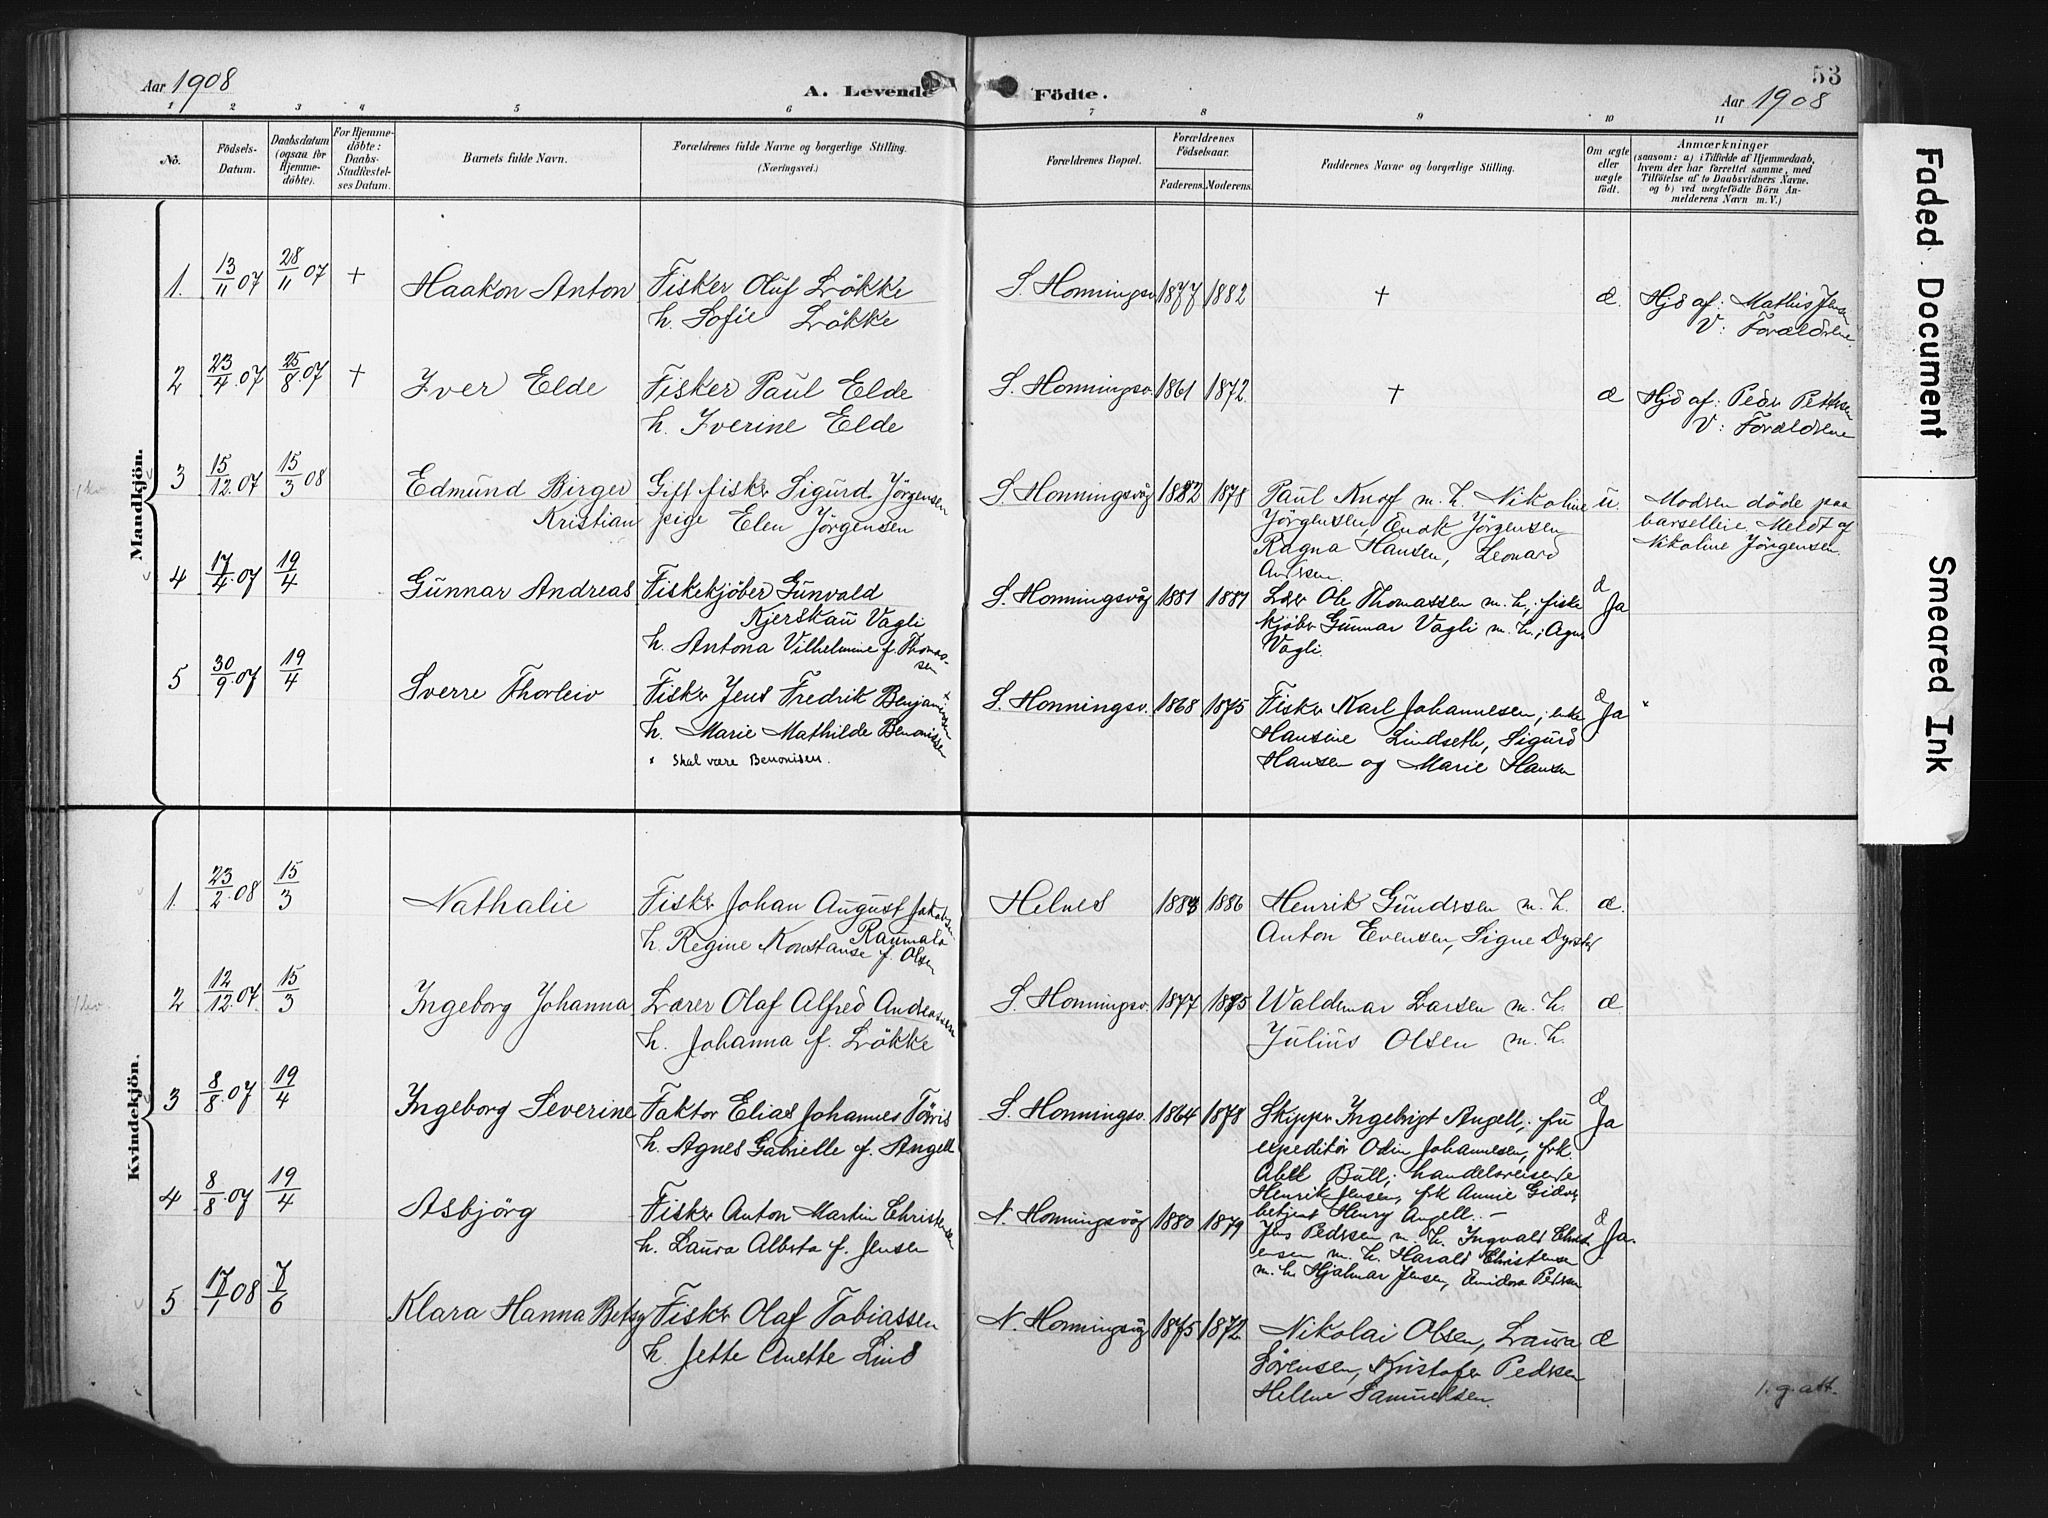 Aar 1908
A. Levende Födte.
53
Aar 1908
1 2 3 4 5 6 7 8 9 10 11
No.
Födsels-
Datum.
Daabsdatum
(ogsaa for
Hjemme-
döbte).
For Hjemme-
döbte:
Daabs-
Stadfæstel-
ses Datum.
Barnets fulde Navn.
Forældrenes fulde Navne og borgerlige Stilling.
(Næringsvei.)
Forældrenes Bopæl.
Forældrenes
Födselsaar.
Faderens. Moderens.
Faddernes Navne og borgerlige Stilling.
Om ægte
eller
uægte
födt.
Anmærkninger
(saasom: a) i Tilfælde af Hjemmedaab,
hvem der har forrettet samme, med
Tilföielse af to Daabsvidners Navne.
og b) ved uægtefödte Börn An-
melderens Navn m. V.)
Mandkjön.
1. 13/11 07 28/11 07 + Haakon Anton Fisker Oluf Lökke S. Honningsv. 1877 1882 + æ. Hjd af: Mathis Jensen
h. Sofie Lökke V: Forældrene.
2 23/4 07 25/8 07 + Iver Elde Fisker Paul Elde S. Honningsv. 1861 1872. + æ Hjd af: Peder Pettersen
h. Iverine Elde V: Forældrene
3 15/12 07 15/3 08 Edmund Birger Gift fisker Sigurd Jörgensen S. Honningsvåg 1882 1878 Paul Knorf m. h. Nikoline u. Modren döde paa
Kristian pige Elen Jörgensen Jörgensen, Jörgensen barselleie. Meldt af
Ragna Hansen, Leonard Nikoline Jörgensen.
Andrsen.
4 17/4 07 19/4 Gunnar Andreas Fiskekjöber Gunvald S. Honningsvåg 1881 1881 Lærer Ole Thomassen m. h., fiske æ
Kjerskau Vagli kjöber Gunnar Vagli m. h., Agnes Ja
h. Antona Vilhelmine f. Thomas- Vagli.
sen
5 30/9 07 19/4 Sverre Thorleiv Fisker Jens Fredrik Benjaminsen × S. Honningsv. 1868 1875 Fisker Karl Johannesen, enke æ
h. Marie Mathilde Benonissen Hansine Lindseth, Sigurd Ja
× Skal være Benonisen. Hansen og Marie Hansen
Kvindekjön.
1. 23/2 08 15/3 Nathalie Fisker Johan August Jakobsen Helnes 1883 1886 Henrik Gundersen m. h. æ.
Raumala
h. Regine Konstanse f. Olsen Anton Evensen, Signe
2 12/12 07. 15/3 Ingeborg Johanna Lærer Olaf Alfred Andreassen S. Honningsv. 1877 1875 Waldemar Larsen m. h. æ
h. Johanna f. Lökke Julius Olsen m. h.
3 8/8 07 19/4 Ingeborg Severine Faktor Elias Johannes Törris S. Honningsv. 1864 1878 Skipper Ingebrigt Angell, fru æ
h. Agnes Gabrielle f. Angell expeditör Odin Johannesen, frk. Ja
Abel Bull, handelsreisende
Henrik Jensen, frk Annie
betjent Henry Angell. –
4 8/8 07 19/4 Asbjörg Fisker Anton Martin Christensen N. Honningsvåg 1880 1879 Jens Pedersen m. h. Ingvald Christ- æ
h. Laura Alberta f. Jensen ensen m. h. Harald Christensen Ja.
m. h Hjalmar Jensen, Pedersen
5 17/1 08 7/6 Klara Hanna Betsy Fisker Olaf Tobiassen N. Honningsvåg 1875 1872 Nikolai Olsen, Laura æ
h. Jette Anette Lind Sörensen, Kristofer Pedersen
Hellene Samuelsen.
1. g. att.
Faded Document
Smeared Ink